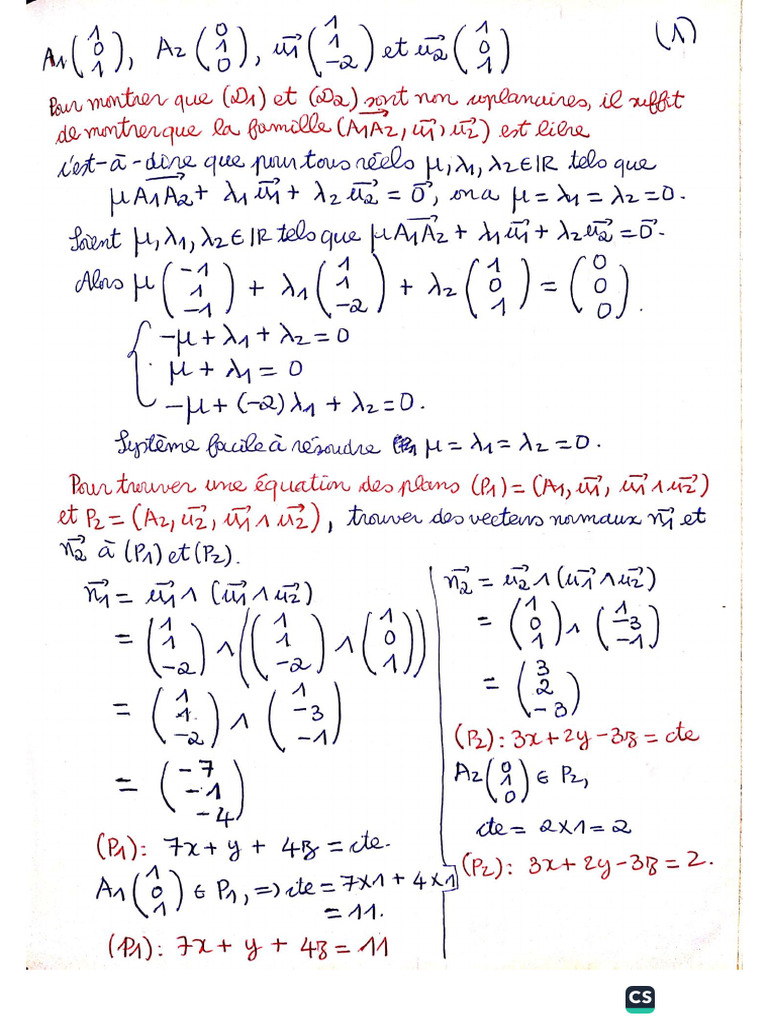 A1(1 0 1), A2(0 1 0), u1→(1 1 -2) et u2→(1 0 1) (1)
Pour montrer que (D1) et (D2) sont non coplanaires, il suffit
de montrer que la famille (A1A2→, u1→, u2→) est libre
c'est-à-dire que pour tous réels μ, λ1, λ2 ∈ IR tels que
μA1A2→ + λ1u1→ + λ2u2→ = 0→, on a μ = λ1 = λ2 = 0.
Soient μ, λ1, λ2 ∈ IR tels que μA1A2→ + λ1u1→ + λ2u2→ = 0→.
Alors μ(-1 1 -1) + λ1(1 1 -2) + λ2(1 0 1) = (0 0 0).
{ -μ + λ1 + λ2 = 0
μ + λ1 = 0
-μ + (-2)λ1 + λ2 = 0.
Système facile à résoudre μ = λ1 = λ2 = 0.
Pour trouver une équation des plans (P1) = (A1, u1→, u1→ ∧ u2→)
et P2 = (A2, u2→, u1→ ∧ u2→), trouver des vecteurs normaux n1→ et
n2→ à (P1) et (P2).
n1→ = u1→ ∧ (u1→ ∧ u2→)
= (1 1 -2) ∧ ((1 1 -2) ∧ (1 0 1))
= (1 1 -2) ∧ (1 -3 -1)
= (-7 -1 -4)
(P1): 7x + y + 4z = cte.
A1(1 0 1) ∈ P1, => cte = 7x1 + 4x1
= 11.
(P1): 7x + y + 4z = 11
n2→ = u2→ ∧ (u1→ ∧ u2→)
= (1 0 1) ∧ (1 -3 -1)
= (3 2 -3)
(P2): 3x + 2y - 3z = cte
A2(0 1 0) ∈ P2,
cte = 2x1 = 2
(P2): 3x + 2y - 3z = 2.
CS